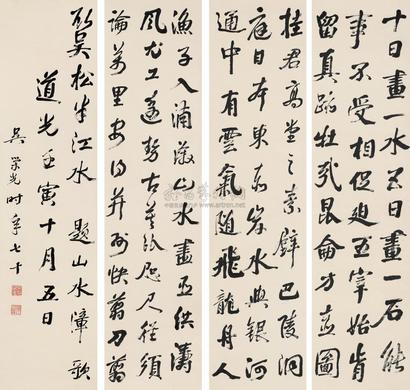 十日畫一水五日畫一石能
事不受相促迫王宰始肯
留真跡壯哉崑崙方壺圖
挂君高堂之素壁巴陵洞
庭日本東赤岸水與銀河
通中有雲氣隨飛龍舟人
漁子入浦漵山木盡亞洪濤
風尤工遠勢古莫比咫尺應須
論萬里安得并州快翦刀翦
取吴松半江水 題山水障歌
道光壬寅十月五日
吴榮光時年七十